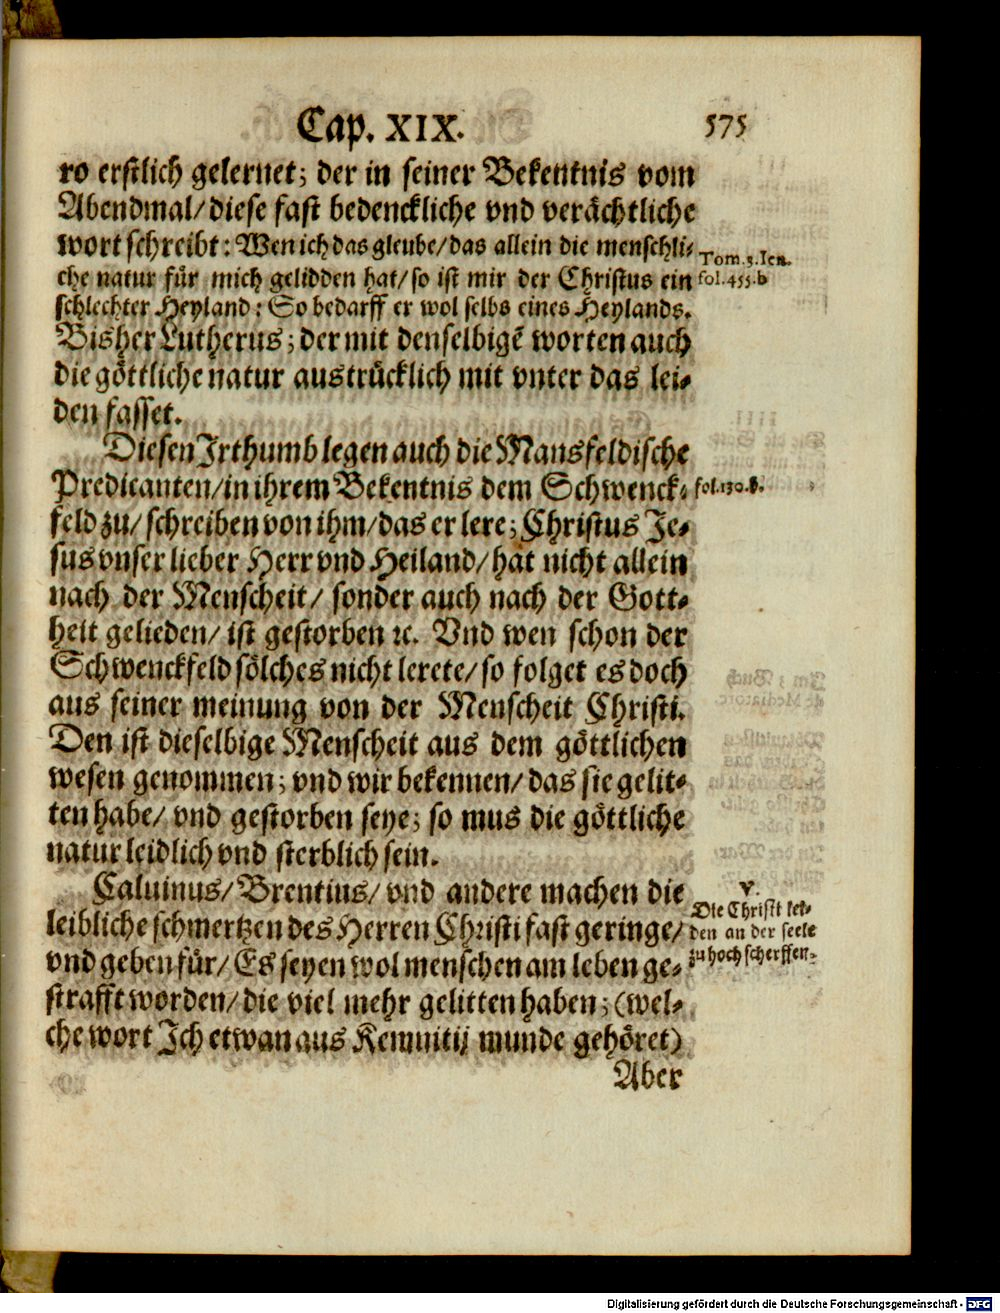 Cap. XIX. 575
ro erstlich gelernet; der in seiner Bekentnis vom
Abendmal/ diese fast bedenckliche vnd verächtliche
wort schreibt: Wen ich das gleube/ das allein die menschli-
che natur für mich gelidden hat/ so ist mir der Christus ein
schlechter Heyland: So bedarff er wol selbs eines Heylands.
Tom. 3. Ien.
fol. 455. b
Bisher Lutherus; der mit denselbigē worten auch
die göttliche natur austrücklich mit vnter das lei-
den fasset.
Diesen Irthumb legen auch die Mansfeldische
Predicanten/ in ihrem Bekentnis dem Schwenck-
fol. 130. b.
feld zu/ schreiben von ihm/ das er lere; Christus Je-
sus vnser lieber Herr vnd Heiland/ hat nicht allein
nach der Menscheit/ sonder auch nach der Gott-
heit gelieden/ ist gestorben ꝛc. Vnd wen schon der
Schwenckfeld sölches nicht lerete/ so folget es doch
aus seiner meinung von der Menscheit Christi.
Den ist dieselbige Menscheit aus dem göttlichen
wesen genommen; vnd wir bekennen/ das sie gelit-
ten habe/ vnd gestorben seye; so mus die göttliche
natur leidlich vnd sterblich sein.
Caluinus/ Brentius/ vnd andere machen die
leibliche schmertzen des Herren Christi fast geringe/
vnd geben für/ Es seyen wol menschen am leben ge-
V.
Die Christi lei-
den an der seele
zu hoch scherffen.
strafft worden/ die viel mehr gelitten haben; (wel-
che wort Ich etwan aus Kemnitij munde gehöret)
Aber
Digitalisierung gefördert durch die Deutsche Forschungsgemeinschaft - DFG